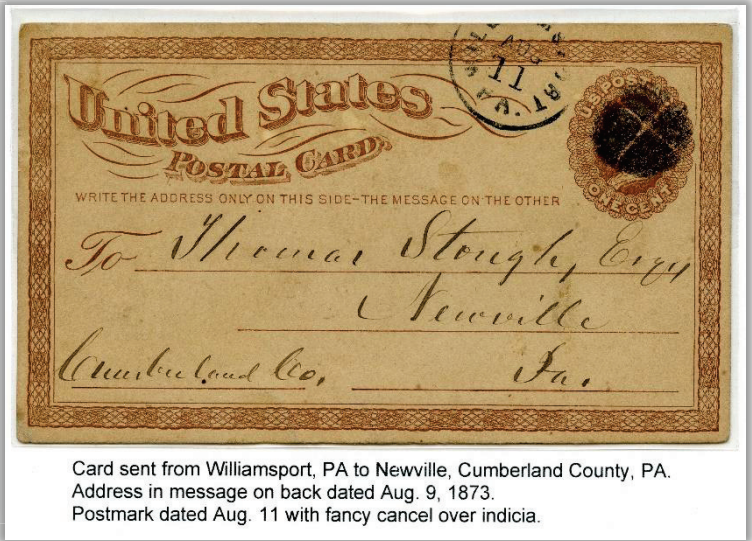 United States
POSTAL CARD.
WRITE THE ADDRESS ONLY ON THIS SIDE-THE MESSAGE ON THE OTHER
AUG
11
U.S. POSTAGE
ONE CENT
To Thomas Stough, Esqr
Newville
Cumberland Co, Pa.
Card sent from Williamsport, PA to Newville, Cumberland County, PA.
Address in message on back dated Aug. 9, 1873.
Postmark dated Aug. 11 with fancy cancel over indicia.